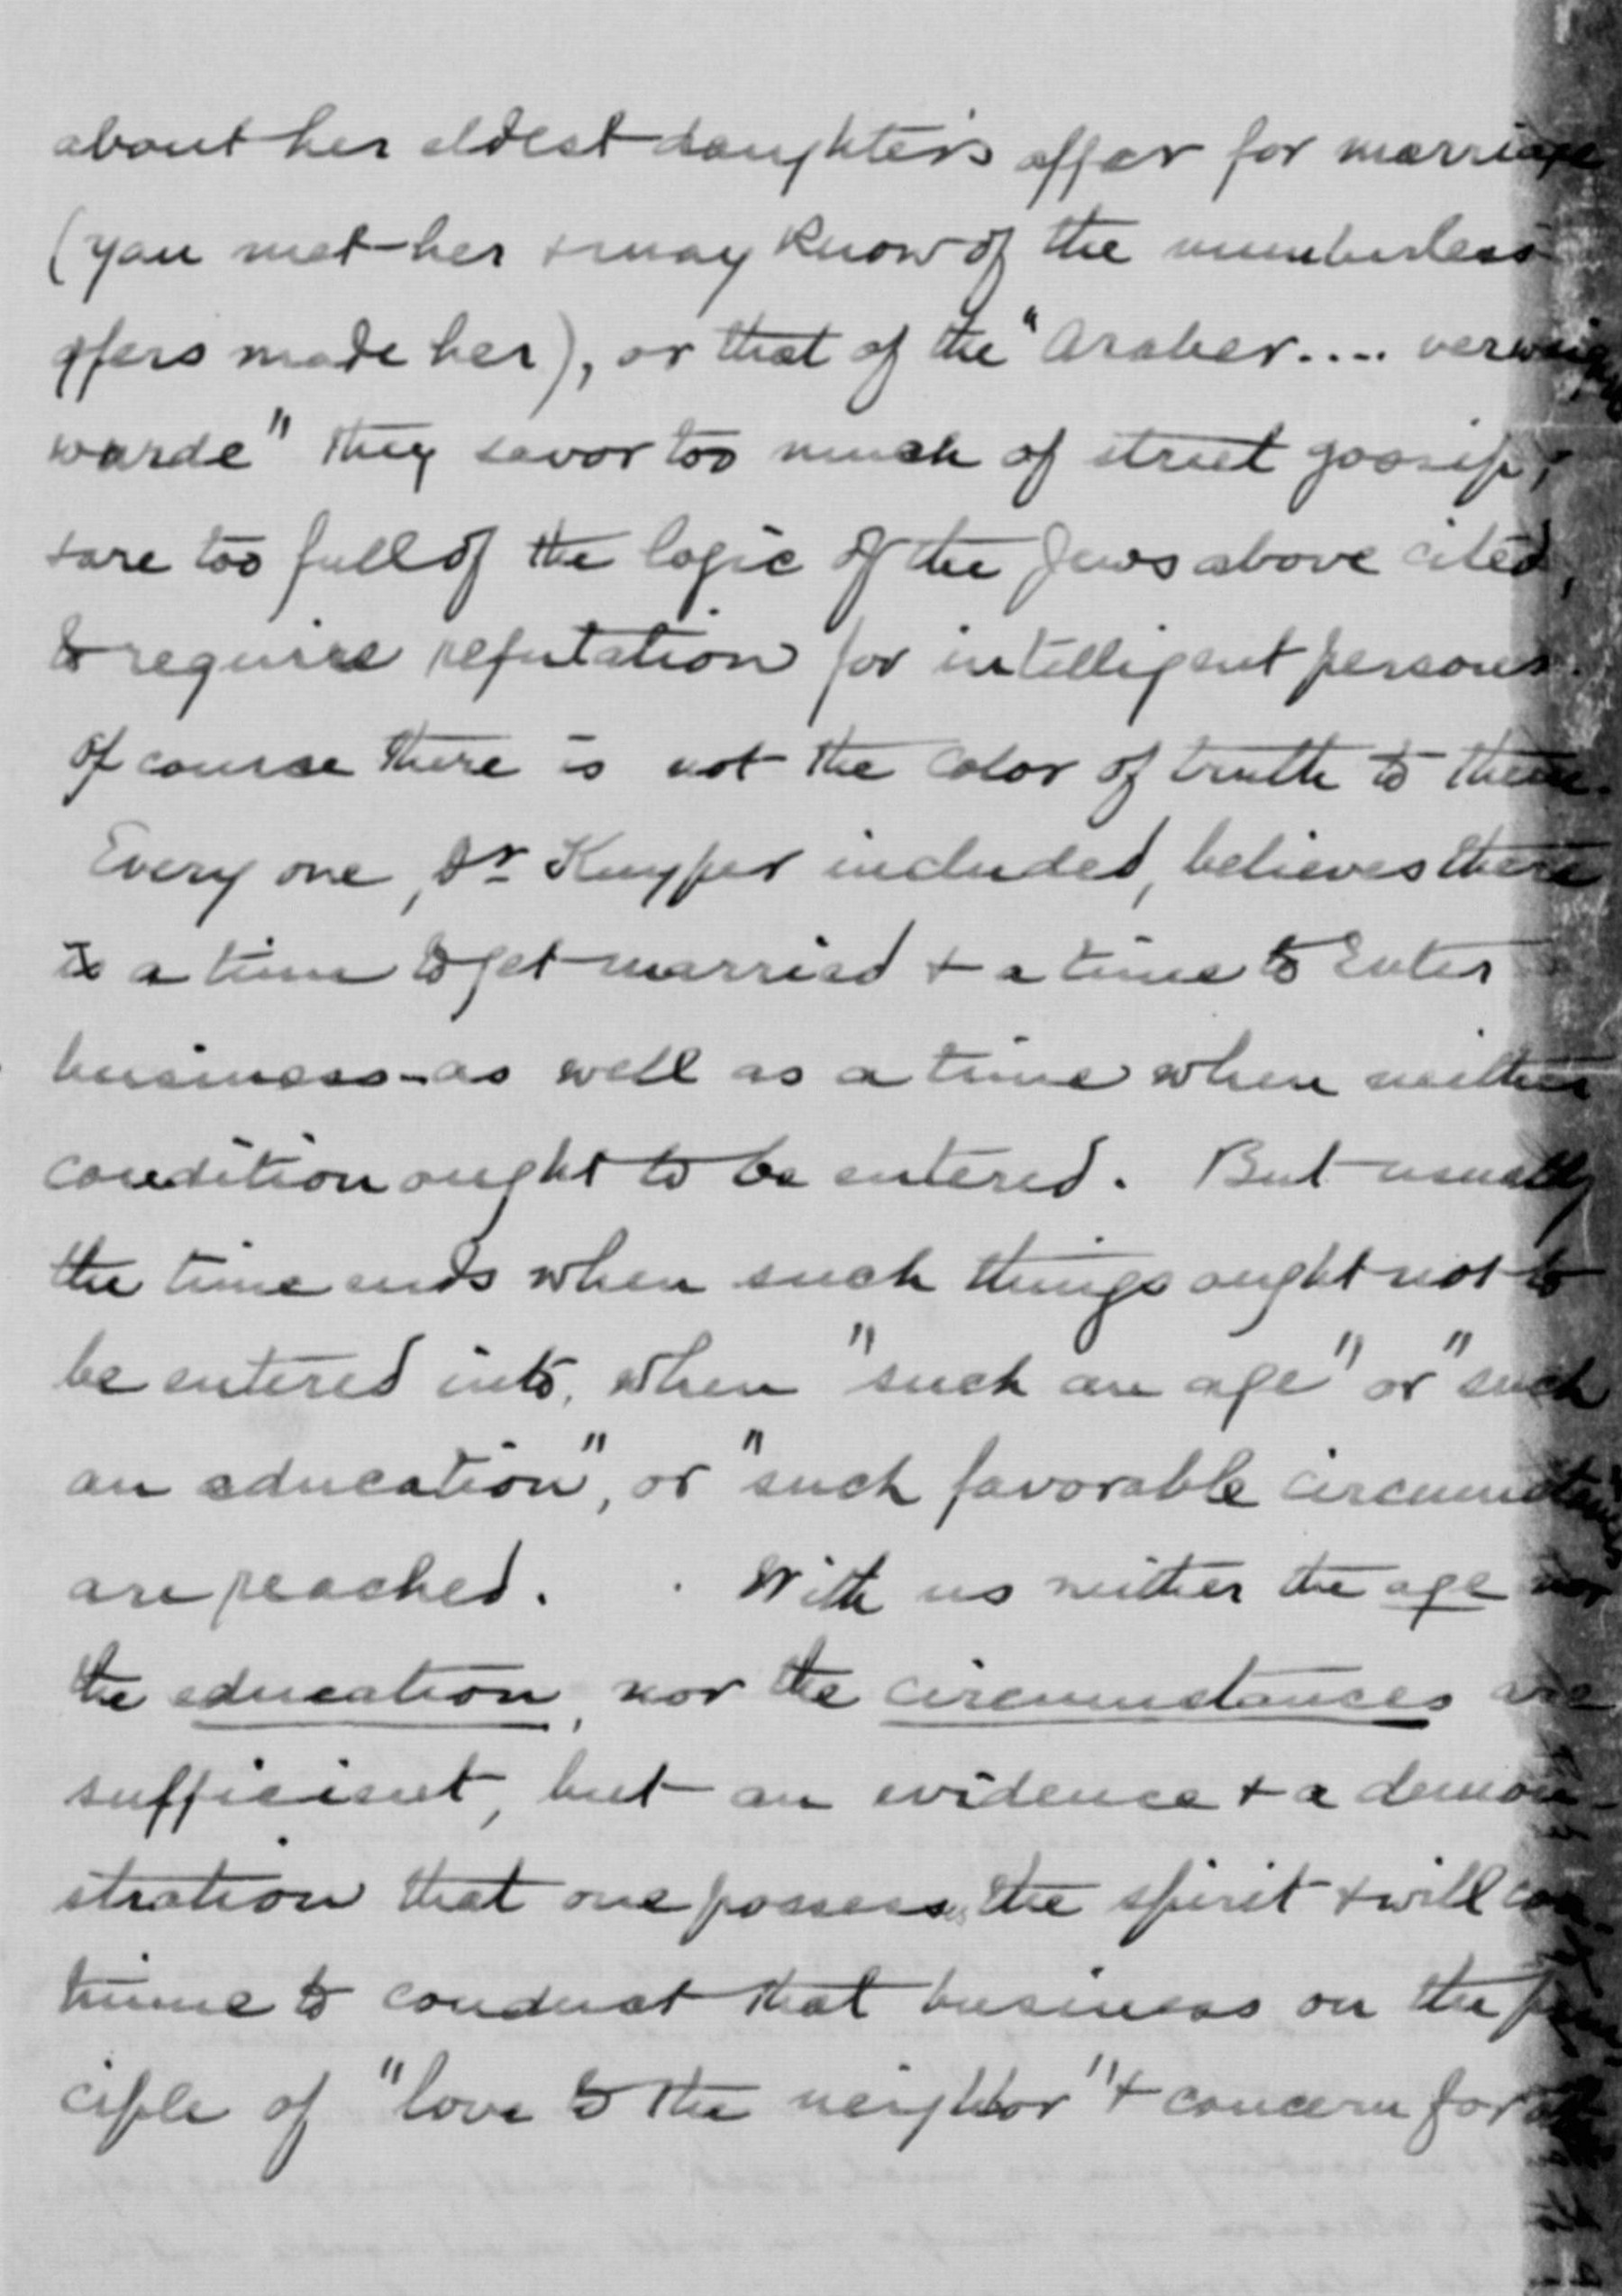 about her eldest daughter's offer for marriage
(you met her & may know of the numberless
offers made her), or that of the "Araber....
wurde" they savor too much of street gossip,
& are too full of the logic of the Jews above cited,
to require refutation for intelligent persons.
Of course there is not the color of truth to them.
Every one, Dr Kuyper included, believes there
is a time to get married & a time to enter
business - as well as a time when neither
condition ought to be entered. But usually
the time ends when such things ought not to
be entered into, when "such an age" or "such
an education", or "such favorable
are reached. With us neither the age nor
the education, nor the circumstances are
sufficient, but an evidence & a demon-
stration that one possesses the spirit & will con
tinue to conduct that business on the
ciple of "love to the neighbor" & concern for